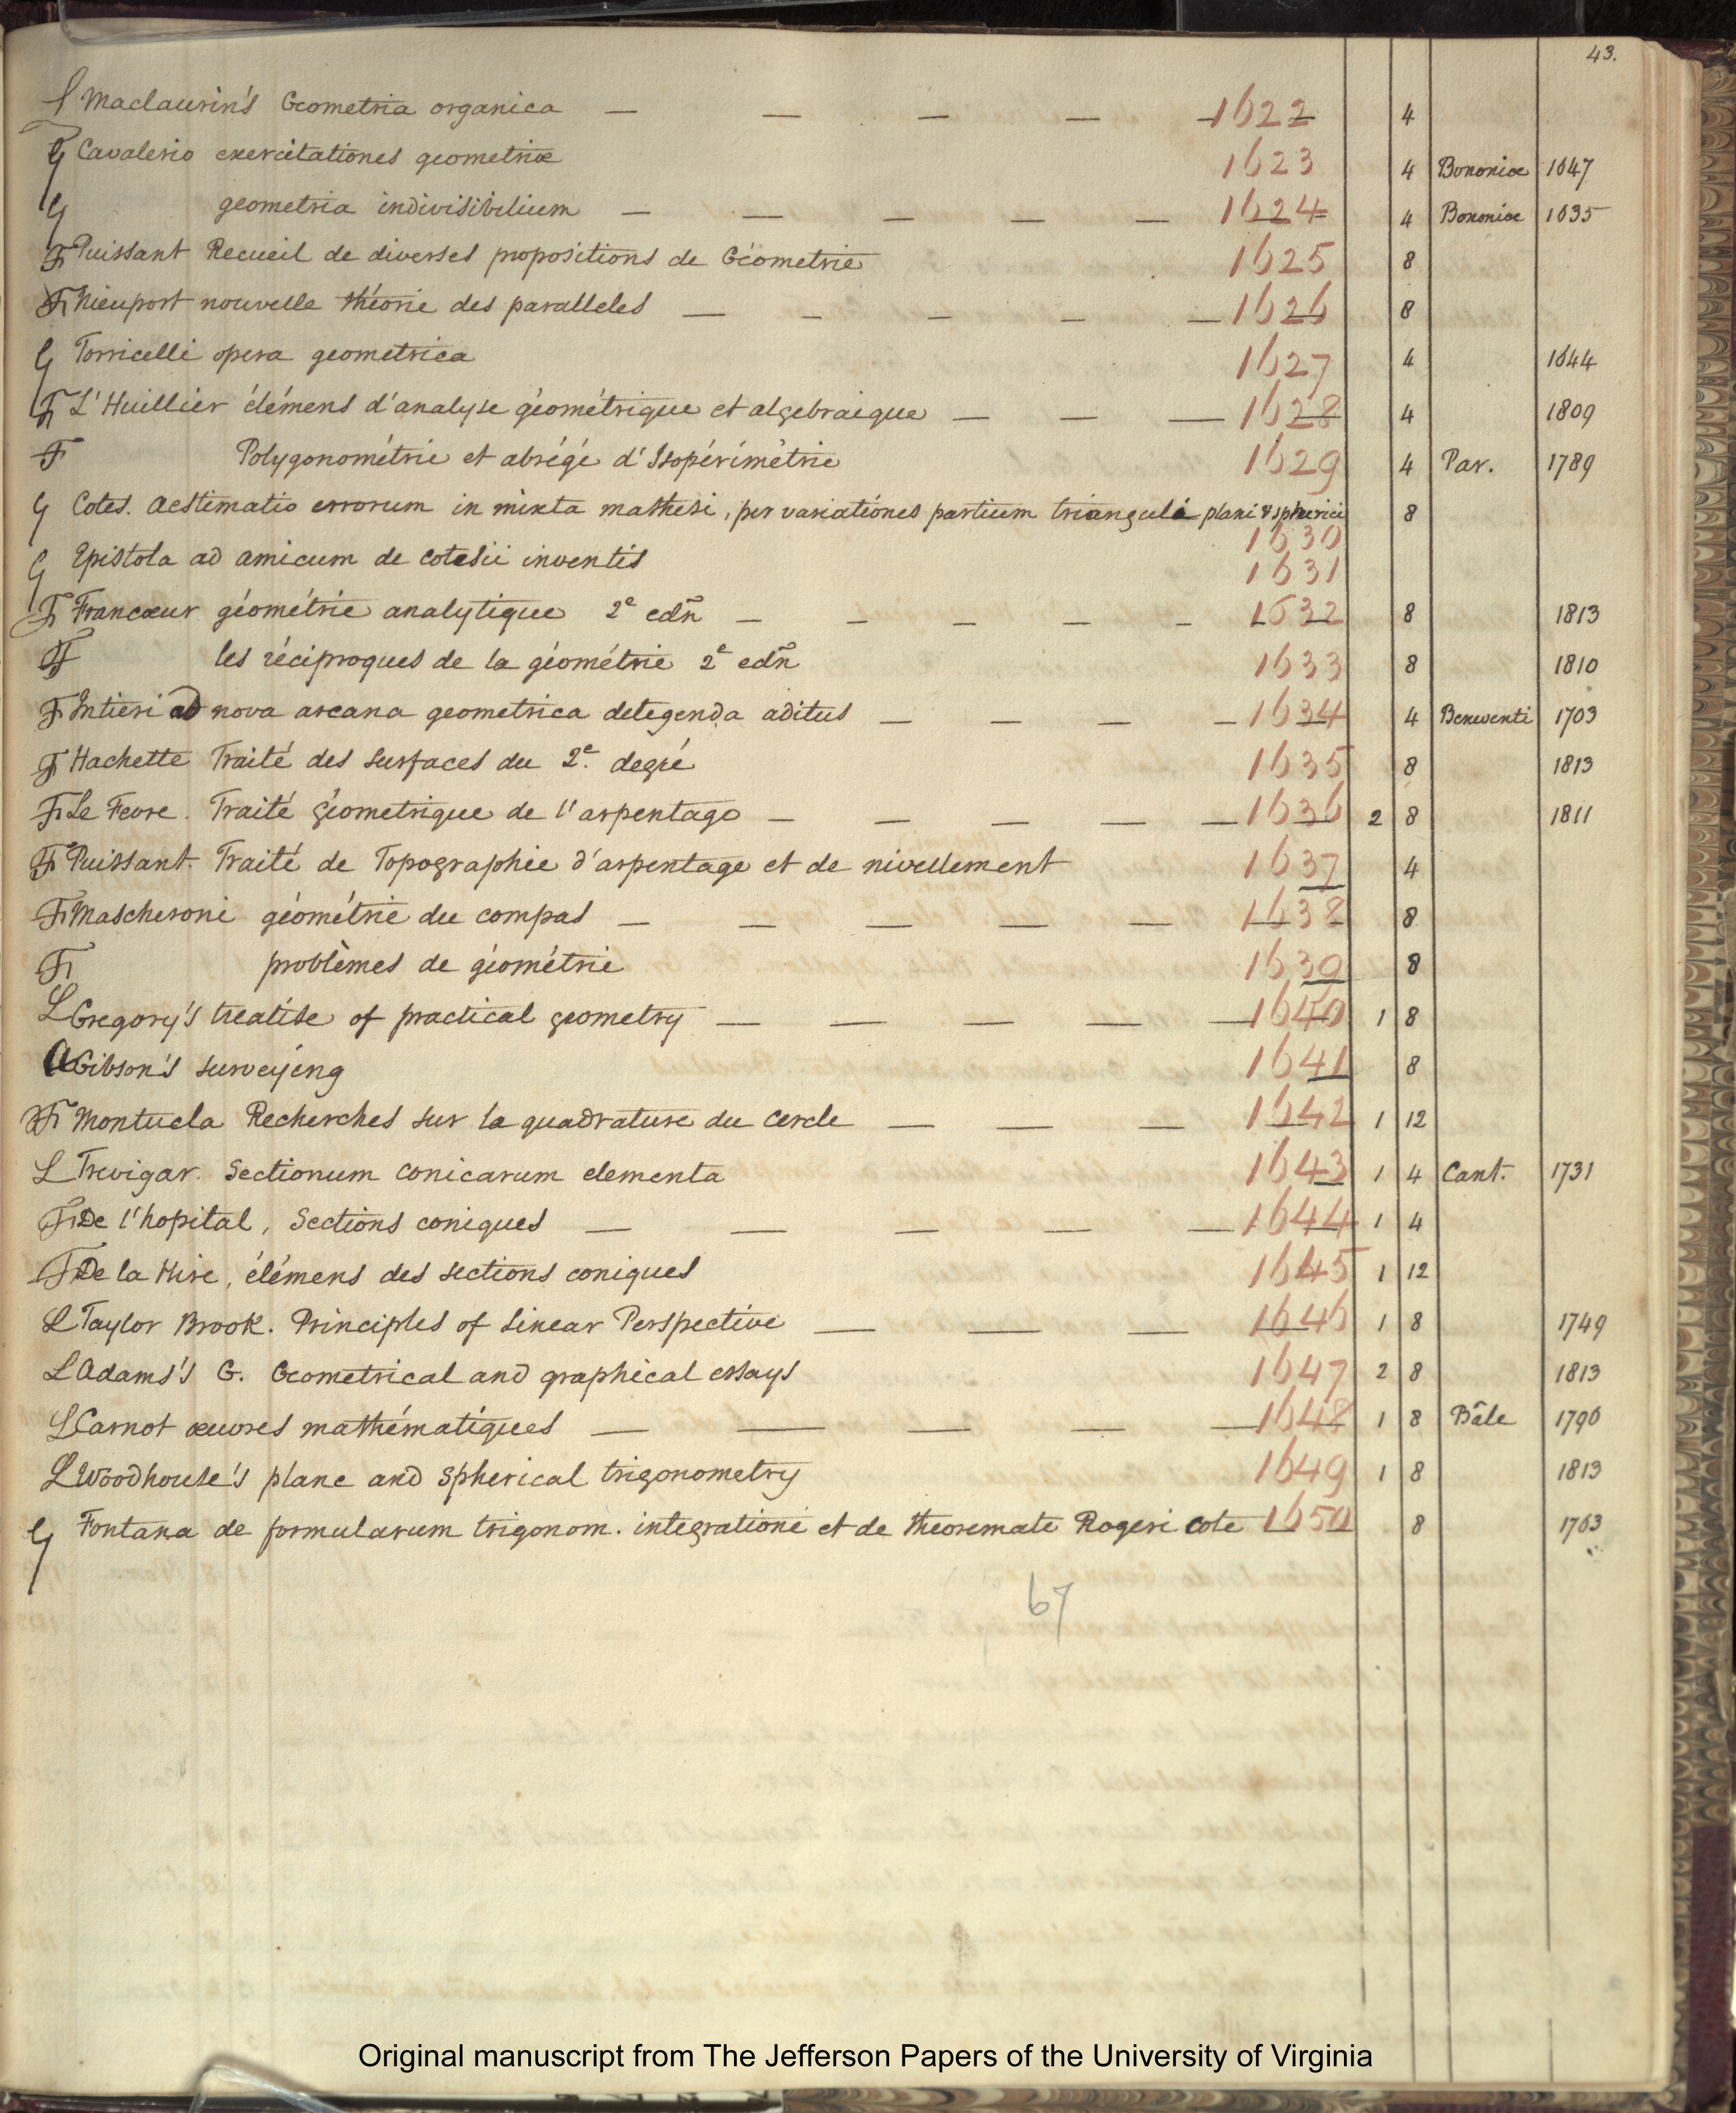 43.
L Maclaurin's Geometria organica — — — — — 1622 4
G Cavalerio exercitationes geometriæ 1623 4 Bononiæ 1647
G geometria indivisibilium — — — — — 1624 4 Bononiæ 1635
F Puissant Recueil de diverses propositions de Géometrie 1625 8
F Nieuport nouvelle théorie des paralleles — — — — — 1626 8
G Torricelli opera geometrica 1627 4 1644
F L'Huillier élémens d'analyse géométrique et algebraique — — — 1628 4 1809
F Polygonométrie et abrégé d'Isopérimétrie 1629 4 Par. 1789
G Cotes. Aestimatio errorum in mixta mathesi, per variationes partium trianguli plani & spherici 8
1630
G Epistola ad amicum de cotesii inventis 1631
F Francœur géométrie analytique 2e edn — — — — — 1632 8 1813
F les réciproques de la géométrie 2e edn 1633 8 1810
F Intieri ad nova arcana geometrica detegenda aditus — — — — 1634 4 Beneventi 1703
F Hachette Traité des surfaces du 2e. degré 1635 8 1813
F Le Fevre. Traité géometrique de l'arpentage — — — — — 1636 2 8 1811
F Puissant. Traité de Topographie d'arpentage et de nivellement 1637 4
F Mascheroni géométrie du compas — — — — — 1638 8
F problèmes de géométrie 1639 8
L Gregory's treatise of practical geometry — — — — — 1640 1 8
A Gibson's surveying 1641 8
F Montucla Recherches sur la quadrature du cercle — — — 1642 1 12
L Trevigar. Sectionum conicarum elementa 1643 1 4 Cant. 1731
F De l'hopital, Sections coniques — — — — — 1644 1 4
F De la Hire, élémens des sections coniques 1645 1 12
L Taylor Brook. Principles of Linear Perspective — — — 1646 1 8 1749
L Adams's G. Geometrical and graphical essays 1647 2 8 1813
L Carnot œuvres mathématiques — — — — — 1648 1 8 Bâle 1796
L Woodhouse's plane and spherical trigonometry 1649 1 8 1813
G Fontana de formularum trigonom. integratione et de theoremate Rogeri cote 1650 8 1763
67
Original manuscript from The Jefferson Papers of the University of Virginia